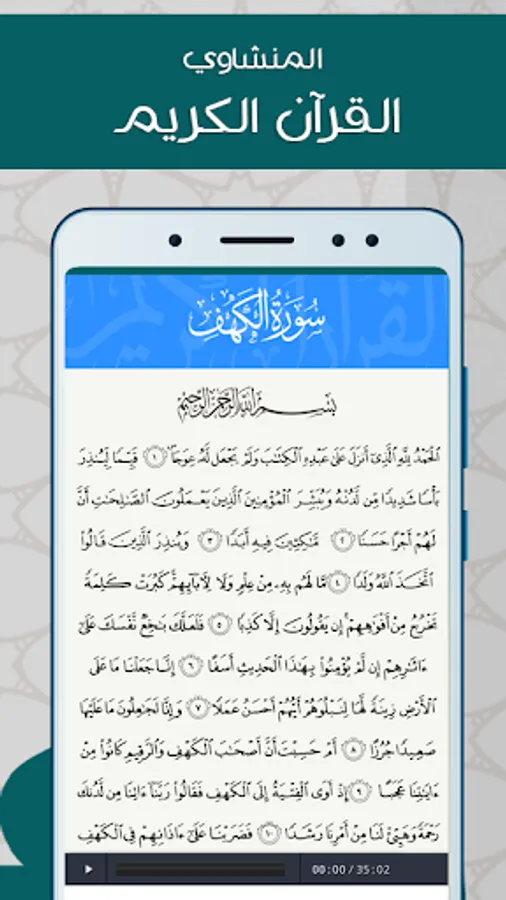 المنشاوي
القرآن الكريم
سُورَةُ الكَهْفِ
بِسْمِ اللَّهِ الرَّحْمَٰنِ الرَّحِيمِ
الْحَمْدُ لِلَّهِ الَّذِي أَنزَلَ عَلَىٰ عَبْدِهِ الْكِتَابَ وَلَمْ يَجْعَل لَّهُ عِوَجًا ۜ ١ قَيِّمًا لِّيُنذِرَ
بَأْسًا شَدِيدًا مِّن لَّدُنْهُ وَيُبَشِّرَ الْمُؤْمِنِينَ الَّذِينَ يَعْمَلُونَ الصَّالِحَاتِ أَنَّ
لَهُمْ أَجْرًا حَسَنًا ٢ مَّاكِثِينَ فِيهِ أَبَدًا ٣ وَيُنذِرَ الَّذِينَ قَالُوا
اتَّخَذَ اللَّهُ وَلَدًا ٤ مَّا لَهُم بِهِ مِنْ عِلْمٍ وَلَا لِآبَائِهِمْ ۚ كَبُرَتْ كَلِمَةً
تَخْرُجُ مِنْ أَفْوَاهِهِمْ ۚ إِن يَقُولُونَ إِلَّا كَذِبًا ٥ فَلَعَلَّكَ بَاخِعٌ نَّفْسَكَ عَلَىٰ
آثَارِهِمْ إِن لَّمْ يُؤْمِنُوا بِهَٰذَا الْحَدِيثِ أَسَفًا ٦ إِنَّا جَعَلْنَا مَا عَلَى
الْأَرْضِ زِينَةً لَّهَا لِنَبْلُوَهُمْ أَيُّهُمْ أَحْسَنُ عَمَلًا ٧ وَإِنَّا لَجَاعِلُونَ مَا عَلَيْهَا
صَعِيدًا جُرُزًا ٨ أَمْ حَسِبْتَ أَنَّ أَصْحَابَ الْكَهْفِ وَالرَّقِيمِ كَانُوا مِنْ
آيَاتِنَا عَجَبًا ٩ إِذْ أَوَى الْفِتْيَةُ إِلَى الْكَهْفِ فَقَالُوا رَبَّنَا آتِنَا مِن لَّدُنكَ
رَحْمَةً وَهَيِّئْ لَنَا مِنْ أَمْرِنَا رَشَدًا ١٠ فَضَرَبْنَا عَلَىٰ آذَانِهِمْ فِي الْكَهْفِ
00:00 / 35:02